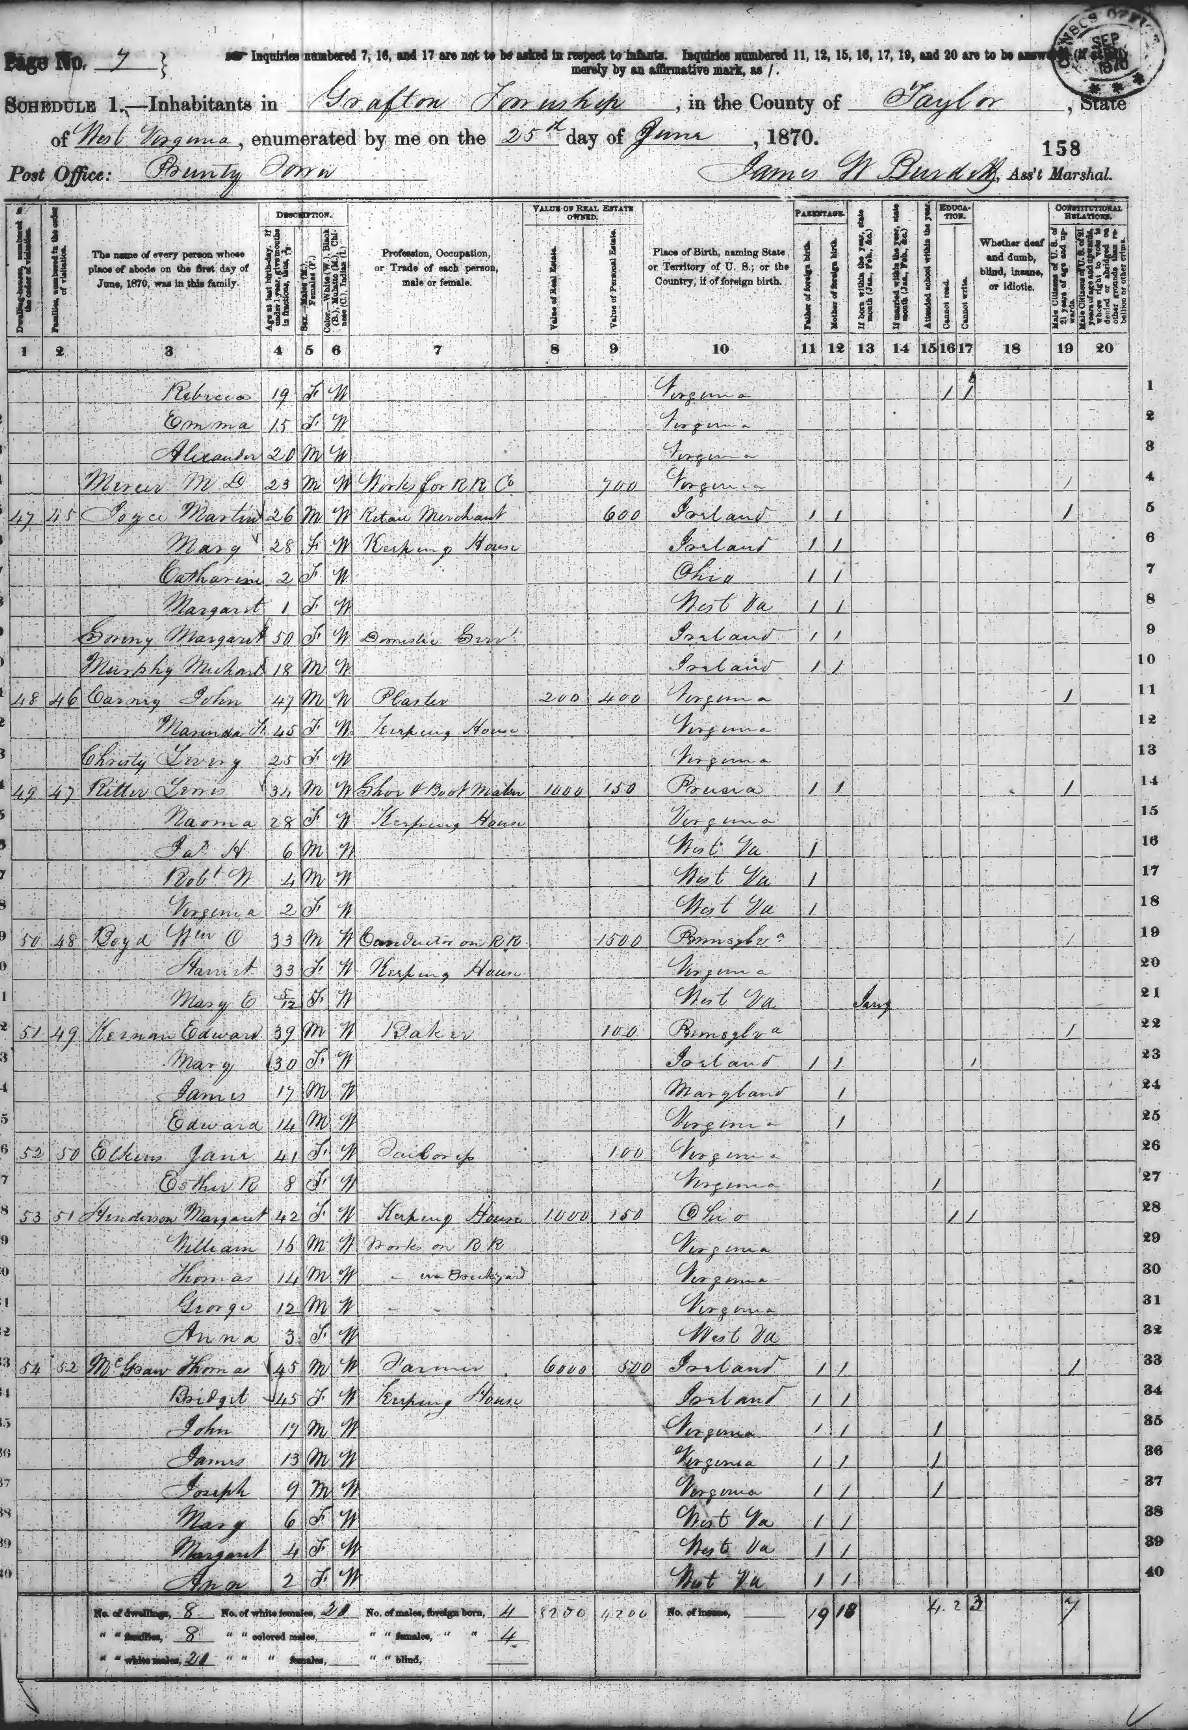 Page No. 7
Inquiries numbered 7, 16, and 17 are not to be asked in respect to infants. Inquiries numbered 11, 12, 15, 16, 17, 19, and 20 are to be answered
merely by an affirmative mark, as /.
SEP 1870
SCHEDULE 1.—Inhabitants in Grafton Township, in the County of Taylor, State
of West Virginia, enumerated by me on the 25th day of June, 1870.
158
Post Office: Town
James W Burdett, Ass't Marshal.
DESCRIPTION. VALUE OF REAL ESTATE OWNED. PARENTAGE. EDUCATION. CONSTITUTIONAL RELATIONS.
Dwelling-houses, numbered in the order of visitation.
Families, numbered in the order of visitation.
The name of every person whose place of abode on the first day of June, 1870, was in this family.
Age at last birth-day. If under 1 year, give months in fractions, thus, 3/12
Sex.—Males (M.), Females (F.)
Color.—White (W.), Black (B.), Mulatto (M.), Chinese (C.), Indian (I.)
Profession, Occupation, or Trade of each person, male or female.
Value of Real Estate.
Value of Personal Estate.
Place of Birth, naming State or Territory of U. S.; or the Country, if of foreign birth.
Father of foreign birth.
Mother of foreign birth.
If born within the year, state month (Jan., Feb., &c.)
If married within the year, state month (Jan., Feb., &c.)
Attended school within the year.
Cannot read.
Cannot write.
Whether deaf and dumb, blind, insane, or idiotic.
Male Citizens of U. S. of 21 years of age and upwards.
Male Citizens of U. S. of 21 years of age and upwards, whose right to vote is denied or abridged on other grounds than rebellion or other crime.
1 2 3 4 5 6 7 8 9 10 11 12 13 14 15 16 17 18 19 20
Rebecca 19 F W Virginia 1 1 1
Emma 15 F W Virginia 2
Alexander 20 M W Virginia 3
Mercer M D 23 M W Works for RR Co 700 Virginia 1 4
47 45 Joyce Martin 26 M W Retail Merchant 600 Ireland 1 1 1 5
Mary 28 F W Keeping House Ireland 1 1 6
Catharine 2 F W Ohio 1 1 7
Margaret 1 F W West Va 1 1 8
Margaret 50 F W Domestic Servt Ireland 1 1 9
Murphy Michael 18 M W Ireland 1 1 10
48 46 Carney John 47 M W Plaster 200 400 Virginia 1 11
Marinda F. 45 F W Keeping House Virginia 12
Christy 25 F W Virginia 13
49 47 Ritter Lewis 34 M W Shoe & Boot Maker 1000 150 Prusia 1 1 1 14
Naoma 28 F W Keeping House Virginia 15
Jas H 6 M W West Va 1 16
Robt W 4 M W West Va 1 17
Virginia 2 F W West Va 1 18
50 48 Boyd Wm O 33 M W Conductor on RR 1500 Pennsylva 1 19
Harriet 33 F W Keeping House Virginia 20
Mary E 5/12 F W West Va Jany 21
51 49 Kernan Edward 39 M W Baker 100 Pennsylva 1 22
Mary 30 F W Ireland 1 1 1 23
James 17 M W Maryland 1 24
Edward 14 M W Virginia 1 25
52 50 Elkins Jane 41 F W Tailoress 100 Virginia 26
Esther R 8 F W Virginia 1 27
53 51 Henderson Margaret 42 F W Keeping House 1000 150 Ohio 1 1 28
William 16 M W Works on RR Virginia 29
Thomas 14 M W " on Brickyard Virginia 30
George 12 M W Virginia 31
Anna 3 F W West Va 32
54 52 McGraw Thomas 45 M W Farmer 6000 500 Ireland 1 1 1 33
Bridget 45 F W Keeping House Ireland 1 1 34
John 17 M W Virginia 1 1 1 35
James 13 M W Virginia 1 1 1 36
Joseph 9 M W Virginia 1 1 1 37
Mary 6 F W West Va 1 1 38
Margaret 4 F W West Va 1 1 39
Ann 2 F W West Va 1 1 40
No. of dwellings, 8 No. of white females, 20 No. of males, foreign born, 4 8200 4200 No. of insane, 19 18 4 2 3 7
" " families, 8 " " colored males, " " females, " " 4
" " white males, 20 " " " females, " " blind,